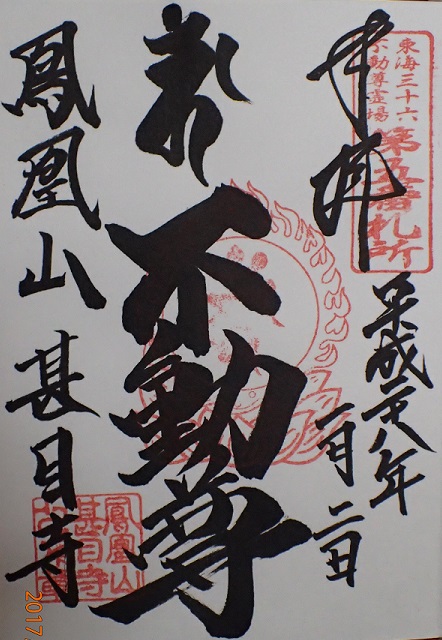 奉拝
東海三十六
不動尊霊場
第五番札所
平成二十八年
一月二日
不動尊
鳳凰山 甚目寺
鳳凰山
甚目寺
2017